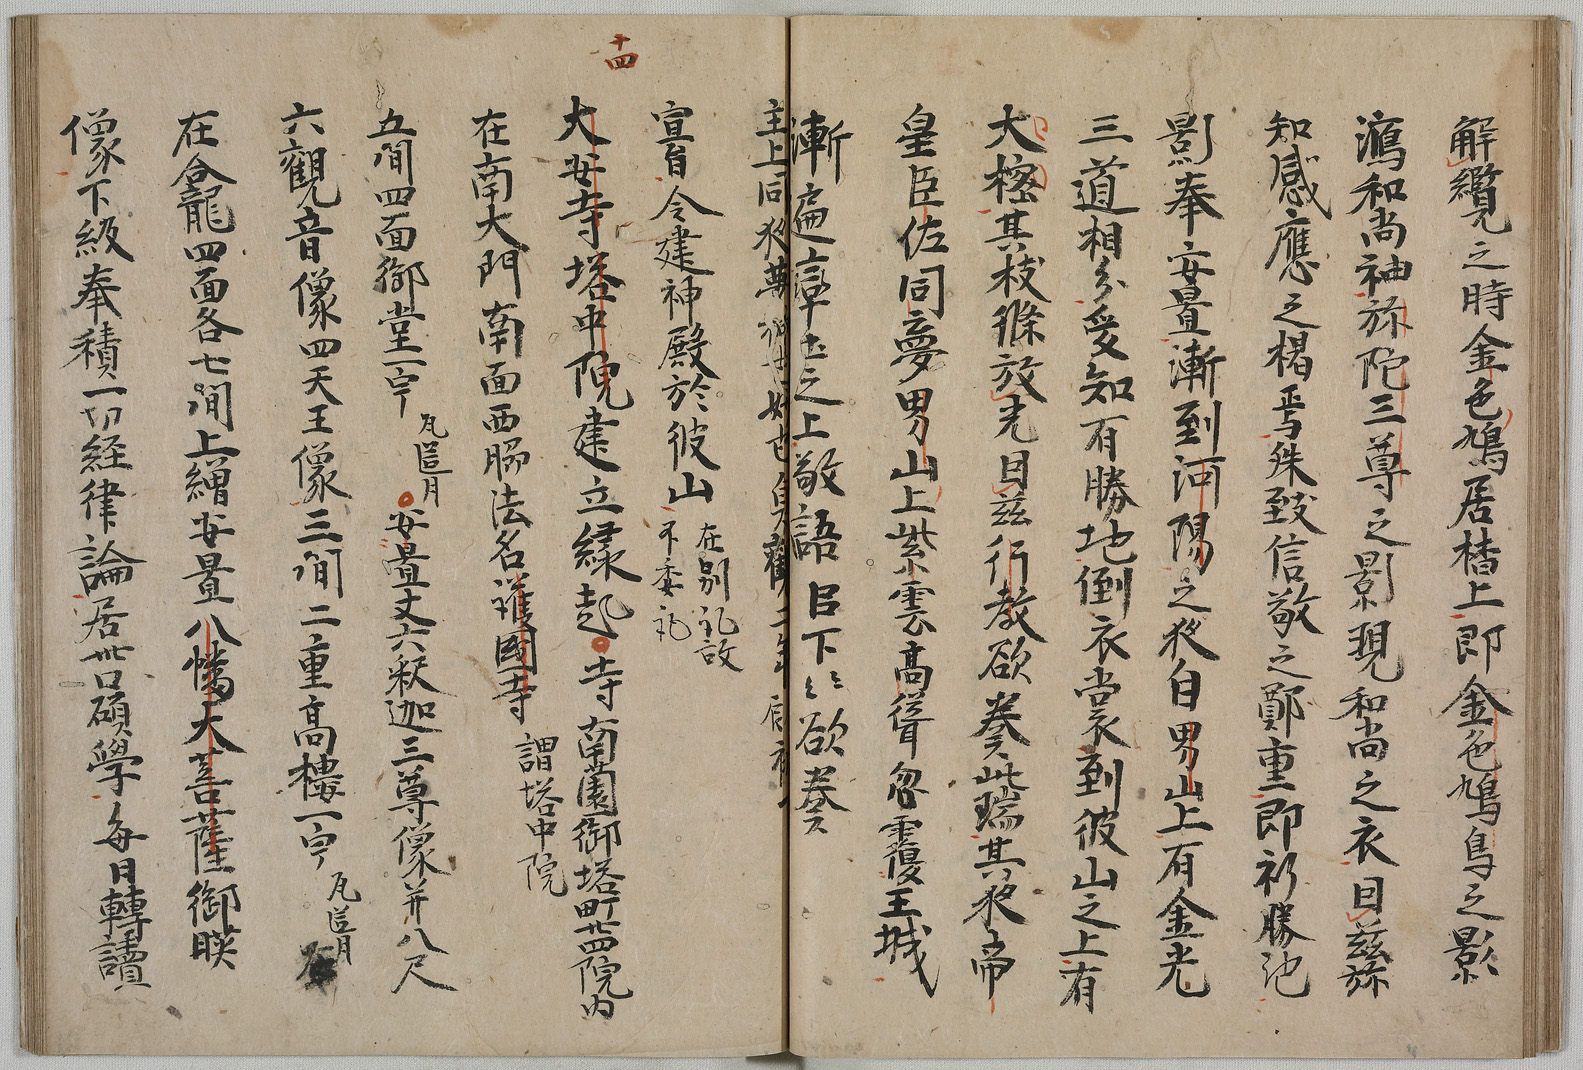 解纜之時金色鳩居楂上即金色鳩鳥之影
瀉和尚袖弥陀三尊之影現和尚之衣因茲弥
知感應之揭焉殊致信敬之鄭重即祈勝地
影奉安置漸到河陽之夜自男山上有金光
三道相分爰知有勝地倒衣裳到彼山之上有
大樒其枝條放光因茲行教欲奏此瑞其夜帝
皇臣佐同夢男山上紫雲高聳忽覆王城
漸遍率土之上敬語臣下々々欲奏
主上同夜夢
宣旨令建神殿於彼山 在別記故
不委記
十四
大安寺塔中院建立縁起 寺南薗御塔町廿四院内
在南大門南面西脇法名護國寺 謂塔中院
五間四面御堂一宇 瓦葺 安置丈六釈迦三尊像并八尺
六觀音像四天王像三間二重高樓一宇 瓦葺
在龕四面各七間上繒安置八幡大菩薩御暎
像下級奉積一切経律論居卅口碩學毎日轉讀